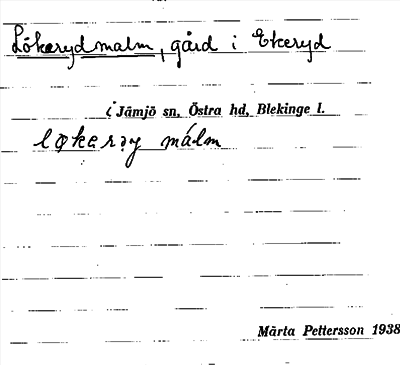 Lökerydmalm, gård i Ekeryd
i Jämjö sn, Östra hd, Blekinge l.
løkerəy málm
Märta Pettersson 1938